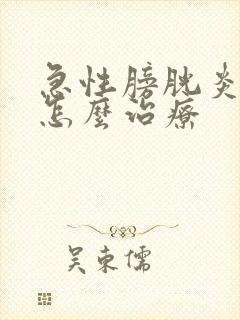 急性膀胱炎
怎麼治療
吴東儒